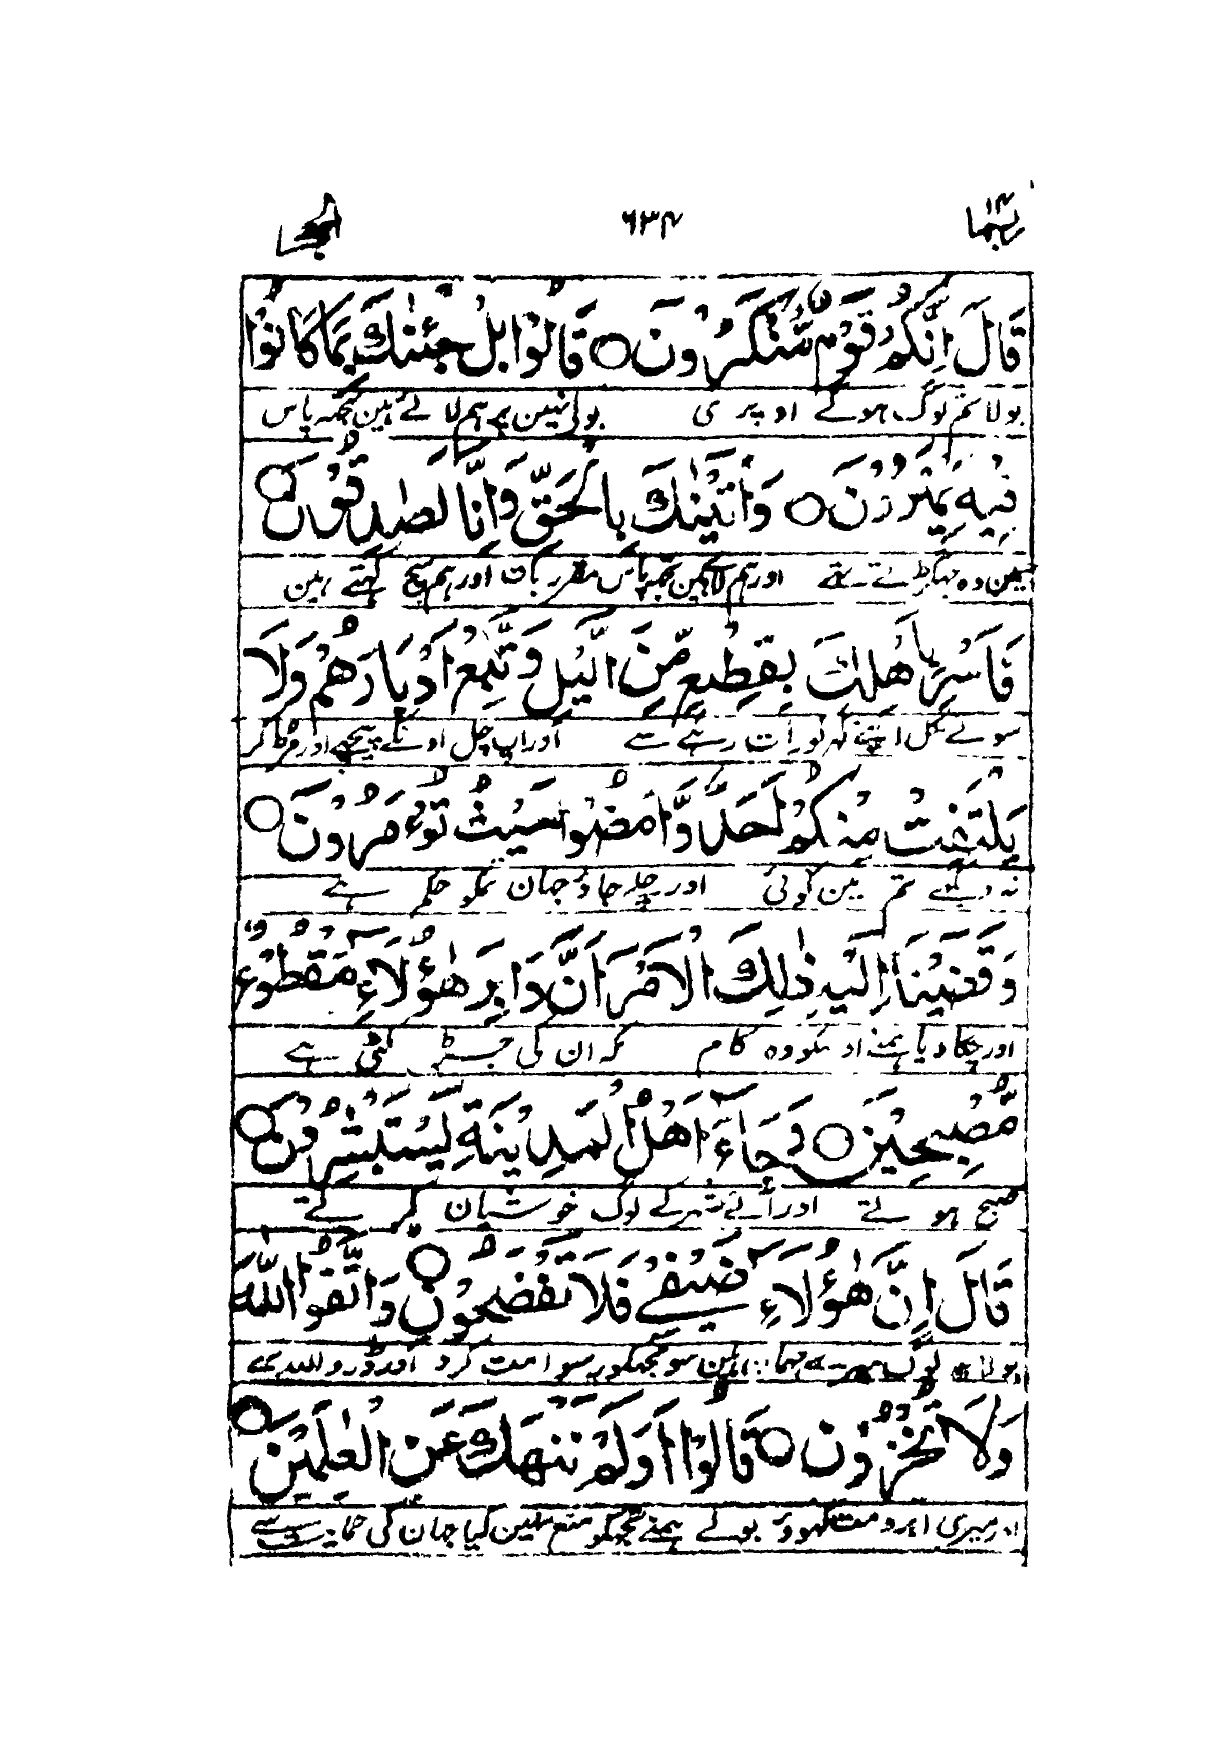 ربما ١٤ ٦٣٤ الحجر
قَالَ اِنَّكُمْ قَوْمٌ مُّنْكَرُوْنَ ○ قَالُوْا بَلْ جِئْنٰكَ بِمَا كَانُوْا
بولا تم لوگ ہوگے اوپری بولے نہین پر ہم لائے ہین تجھہ پاس
فِيْهِ يَمْتَرُوْنَ ○ وَاَتَيْنٰكَ بِالْحَقِّ وَاِنَّا لَصٰدِقُوْنَ ○
جسمین وہ جہگڑتے تھے اور ہم لائے ہین تجھہ پاس مقرر بات اور ہم سچ کہتے ہین
فَاَسْرِ بِاَهْلِكَ بِقِطْعٍ مِّنَ الَّيْلِ وَاتَّبِعْ اَدْبَارَهُمْ وَلَا
سو لے نکل اپنے گہر کو رات رہے سے اور آپ چل اونکے پیچھے اور مڑ کر
يَلْتَفِتْ مِنْكُمْ اَحَدٌ وَّامْضُوْا حَيْثُ تُؤْمَرُوْنَ ○
نہ دیکھے تم مین کوئی اور چلے جاؤ جہان تمکو حکم ہے
وَقَضَيْنَآ اِلَيْهِ ذٰلِكَ الْاَمْرَ اَنَّ دَابِرَ هٰٓؤُلَآءِ مَقْطُوْعٌ
اور چکا دیا ہمنے اوسکو وہ کام کہ ان کی جڑ کٹی ہے
مُّصْبِحِيْنَ ○ وَجَآءَ اَهْلُ الْمَدِيْنَةِ يَسْتَبْشِرُوْنَ ○
صبح ہوتے اور آئے شہر کے لوگ خوشیان کرتے
قَالَ اِنَّ هٰٓؤُلَآءِ ضَيْفِيْ فَلَا تَفْضَحُوْنِ ○ وَاتَّقُوا اللّٰهَ
بولا یہ لوگ میرے مہمان ہین سو مجھکو رسوا مت کرو اور ڈرو اللہ سے
وَلَا تُخْزُوْنِ ○ قَالُوْٓا اَوَلَمْ نَنْهَكَ عَنِ الْعٰلَمِيْنَ ○
اور میری ابرو مت کھوؤ بولے ہمنے تجھکو منع نہین کیا جہان کی حمایت سے